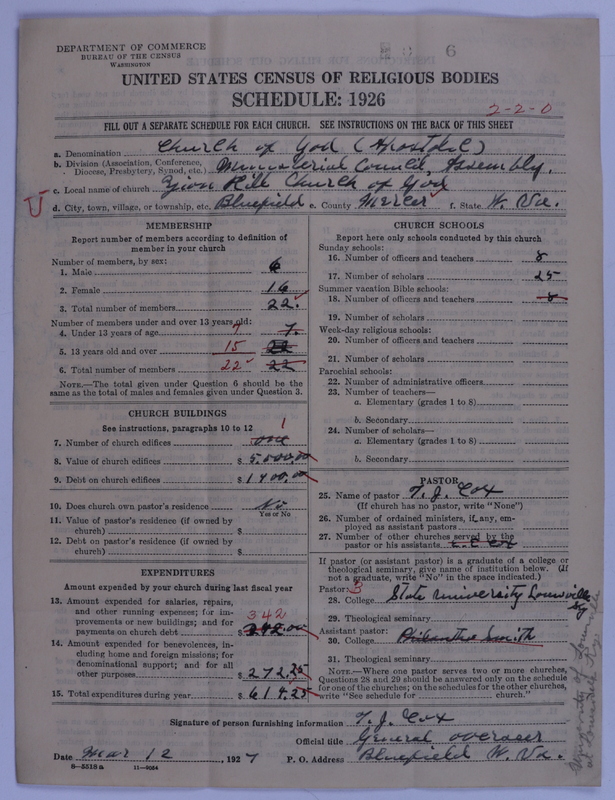 DEPARTMENT OF COMMERCE
BUREAU OF THE CENSUS
WASHINGTON
6
UNITED STATES CENSUS OF RELIGIOUS BODIES
SCHEDULE: 1926
2-2-0
FILL OUT A SEPARATE SCHEDULE FOR EACH CHURCH. SEE INSTRUCTIONS ON THE BACK OF THIS SHEET
a. Denomination Church of God (Apostolic)
b. Division (Association, Conference, Diocese, Presbytery, Synod, etc.) Ministerial Council, Assembly.
c. Local name of church Zion Hill Church of God
d. City, town, village, or township, etc. Bluefield e. County Mercer f. State W. Va.
MEMBERSHIP
Report number of members according to definition of
member in your church
Number of members, by sex:
1. Male 6
2. Female 16
3. Total number of members 22
Number of members under and over 13 years old:
4. Under 13 years of age 7 7.
5. 13 years old and over 15 22
6. Total number of members 22 22
NOTE.—The total given under Question 6 should be
same as the total of males and females given under Question 3.
CHURCH BUILDINGS
See instructions, paragraphs 10 to 12
1
7. Number of church edifices one
8. Value of church edifices $ 5,000.00
9. Debt on church edifices $ 1400.00
10. Does church own pastor's residence No
Yes or No
11. Value of pastor's residence (if owned by
church) $
12. Debt on pastor's residence (if owned by
church) $
EXPENDITURES
Amount expended by your church during last fiscal year
13. Amount expended for salaries, repairs,
and other running expenses; for im-
provements or new buildings; and for
342
payments on church debt $ 342.00
14. Amount expended for benevolences, in-
cluding home and foreign missions; for
denominational support; and for all
other purposes $ 272.25
15. Total expenditures during year $ 614.25
CHURCH SCHOOLS
Report here only schools conducted by this church
Sunday schools:
16. Number of officers and teachers 8
17. Number of scholars 25
Summer vacation Bible schools:
18. Number of officers and teachers 8
19. Number of scholars
Week-day religious schools:
20. Number of officers and teachers
21. Number of scholars
Parochial schools:
22. Number of administrative officers
23. Number of teachers—
a. Elementary (grades 1 to 8)
b. Secondary
24. Number of scholars—
a. Elementary (grades 1 to 8)
b. Secondary
PASTOR
25. Name of pastor T. J. Cox
(If church has no pastor, write "None")
26. Number of ordained ministers, if any, em-
ployed as assistant pastors
27. Number of other churches served by the
pastor or his assistants
If pastor (or assistant pastor) is a graduate of a college or
theological seminary, give name of institution below. (If
not a graduate, write "No" in the space indicated.)
Pastor: 3
28. College State University Louisville Ky
29. Theological seminary
Assistant pastor:
30. College Smith
31. Theological seminary
NOTE.—Where one pastor serves two or more churches,
Questions 28 and 29 should be answered only on the schedule
for one of the churches; on the schedules for the other churches,
write "See schedule for church."
University of Louisville
at Louisville Ky.
Signature of person furnishing information T. J. Cox
Official title General overseer
Date Mar 12, 1927 P. O. Address Bluefield W. Va.
8—5518a 11—9034